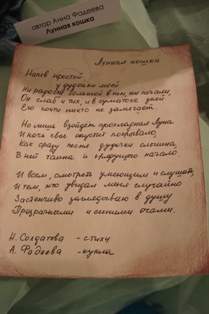 автор Анна Фадеева
Лунная кошка
Лунная кошка
Напев простой
у дудочки моей
Ни радости большой в нём, ни печали,
Он слаб и тих, и в суматохе дней
Его почти никто не замечает.
Но лишь взойдёт прохладная Луна
И ночь свое опустит покрывало,
Как сразу песня дудочки слышна,
В ней тайна и грядущего начало
И всем, смотреть умеющим и слушать,
И тем, кто увидел меня случайно
Застенчиво заглядываю в душу
Прозрачными и синими очами.
Н. Солдатова - стихи
А. Фадеева - кукла